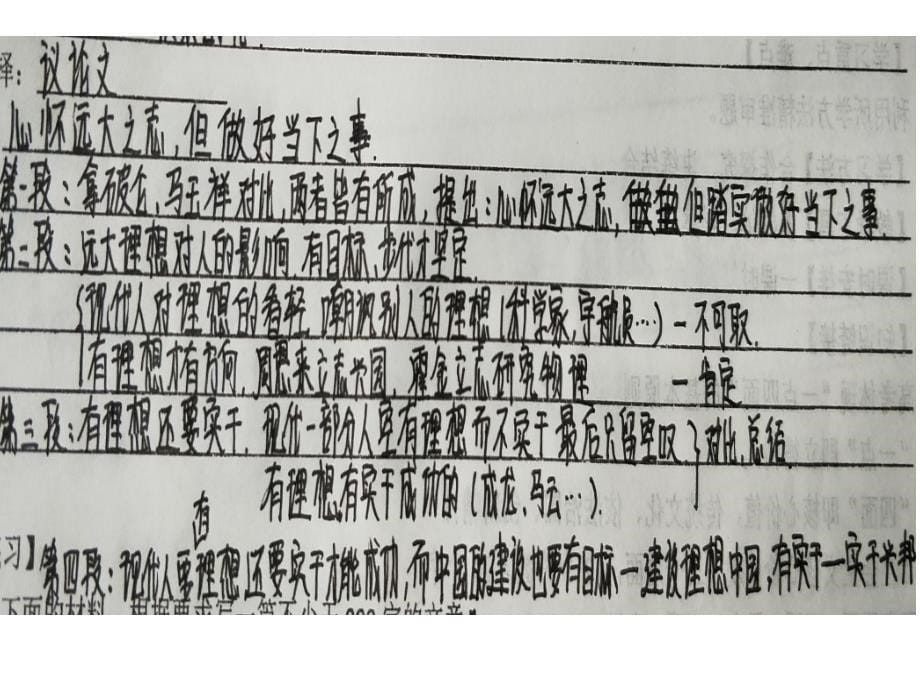 择：议论文
心怀远大之志，但做好当下之事.
第一段：拿破仑、马云祥对比，两者皆有所成，提出：心怀远大之志，但踏实做好当下之事.
第二段：远大理想对人的影响，有目标，步伐才坚定.
{现代人对理想的看轻，嘲讽别人的理想(科学家,宇航员…)—不可取.
有理想才有方向，周恩来立志兴国，霍金立志研究物理 —肯定
第三段：有理想还要实干，现代一部分人空有理想而不实干最后只留空叹 }对比,总结.
有理想有实干成功的(成龙、马云…).
有
习】
第四段：现代人要理想,还要实干才能成功，而中国的建设也要有目标—建设理想中国，有实干—实干兴邦
下面的材料，根据要求写一篇不少于800字的文章